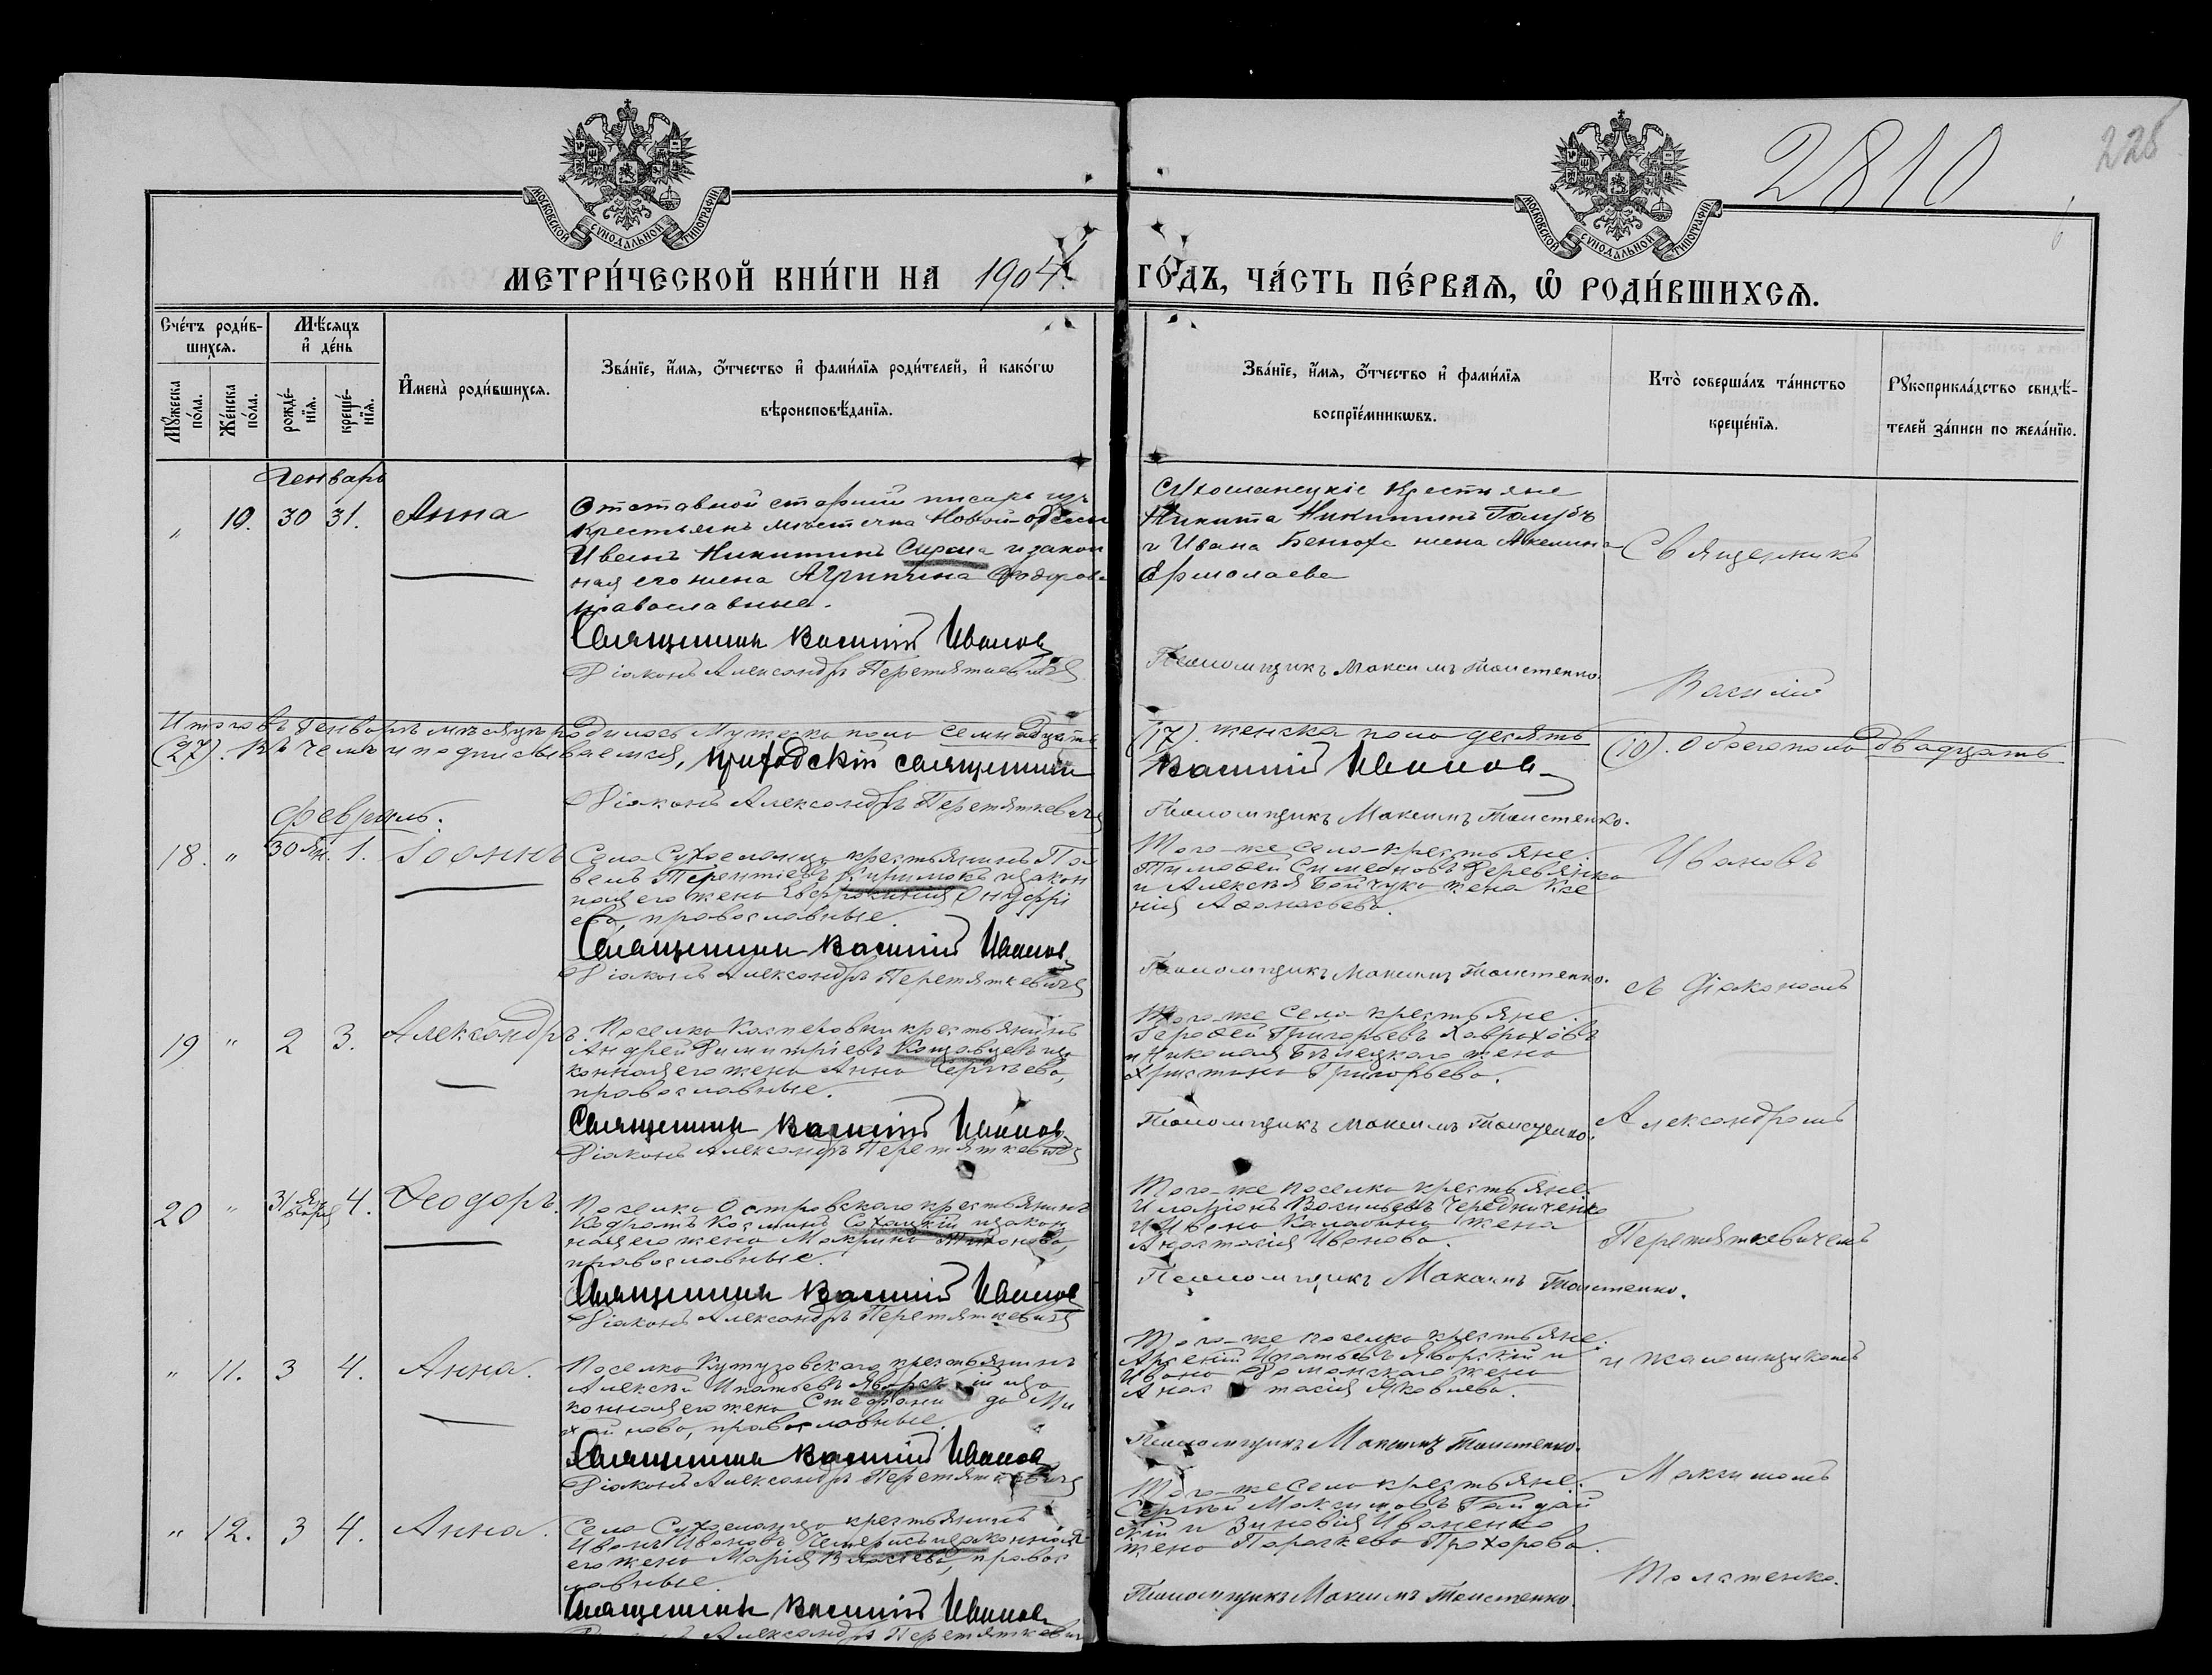 2810
228
МОСКОВСКОЙ СѴНОДАЛЬНОЙ ТИПОГРАФІИ
МОСКОВСКОЙ СѴНОДАЛЬНОЙ ТИПОГРАФІИ
МЕТРИ́ЧЕСКОЙ КНИ́ГИ НА 1904 ГО́ДЪ, ЧА́СТЬ ПЕ́РВАѦ, Ѡ҆ РОДИ́ВШИХСѦ.
Сче́тъ роди́в-
шихсѧ.
Мѣ́сѧцъ
и҆ де́нь
Мꙋ́жеска
по́ла.
Же́нска
по́ла.
рожде́-
нїѧ.
креще́-
нїѧ.
И҆мена̀ роди́вшихсѧ.
Зва́нїе, и҆́мѧ, ѻ҆́тчество и҆ фами́лїѧ роди́телей, и҆ како́гѡ
вѣроисповѣ́данїѧ.
Зва́нїе, и҆́мѧ, ѻ҆́тчество и҆ фами́лїѧ
воспрїе́мникѡвъ.
Кто̀ соверша́лъ та́инство
креще́нїѧ.
Рꙋкоприкла́дство свидѣ́-
телей за́писи по жела́нїю.
Генварь
" 10. 30 31. Анна
Отставной старшій писарь изъ
крестьянъ мѣстечка Новой-Одессы
Иванъ Никитинъ Сирота и закон
ная его жена Агрипина Феодорова
православные.
Священникъ Василій Ивановъ
Діаконъ Александръ Перетяткевичъ
Сухоеланецкіе крестьяне
Никита Никитинъ Голубъ
и Ивана жена Акелина
Ермолаева
Псаломщикъ Максимъ Толстенко.
Священникъ
Василій
Итого въ Генварѣ мѣсяцѣ родилось Мужеска пола семнадцать (17). женска пола десять (10). Обоего пола двадцать
(27). Въ чемъ и подписываемся, приходскій священникъ Василій Ивановъ
Діаконъ Александръ Перетяткевичъ
Псаломщикъ Максимъ Толстенко.
Февраль.
18. " 30 Ян. 1. Іоаннъ
Села Сухоеланца крестьянинъ Па
велъ Терентіевъ Киримокъ и закон
ная его жена Евфросинія Онуфрі
ева, православные.
Священникъ Василій Ивановъ
Діаконъ Александръ Перетяткевичъ
Того-же села крестьяне:
Тимофей Симеоновъ Деревянко
и Алексѣя Бойчука жена Ксе
нія Афанасьева.
Псаломщикъ Максимъ Толстенко.
Ивановъ
съ Діакономъ
19 " 2 3. Александръ.
Поселка Касперовки крестьянинъ
Андрей Димитріевъ и за
конная его жена Анна Сергѣева,
православные.
Священникъ Василій Ивановъ
Діаконъ Александръ Перетяткевичъ
Того-же села крестьяне:
Григорьевъ
и Николая Бѣлецкаго жена
Христина Григорьева.
Псаломщикъ Максимъ Толстенко.
Александромъ
20 " 31 Января 4. Ѳеодоръ.
Поселка Островскаго крестьянинъ
Кодратъ Козминъ Сохацкій и закон
ная его жена Макрина Тихонова,
православные.
Священникъ Василій Ивановъ
Діаконъ Александръ Перетяткевичъ
Того-же поселка крестьяне:
Иларіонъ Васильевъ Чередниченко
и Ивана Калашника жена
Анастасія Иванова.
Псаломщикъ Максимъ Толстенко.
Перетяткевичемъ
" 11. 3 4. Анна.
Поселка Кутузовскаго крестьянинъ
Алексѣй Игнатьевъ Яворскій и за
конная его жена Стефанида Ми
хайлова, православные.
Священникъ Василій Ивановъ
Діаконъ Александръ Перетяткевичъ
Того-же поселка крестьяне:
Арсеній Игнатьевъ Яворскій и
Ивана Доманскаго жена
Анастасія Яковлева.
Псаломщикъ Максимъ Толстенко.
и псаломщикомъ
Максимомъ
" 12. 3 4. Анна.
Села Сухоеланца крестьянинъ
Иванъ Ивановъ Чемерисъ и законная
его жена Марія Власіева, правос
лавные.
Священникъ Василій Ивановъ
Александръ Перетяткевич
Того-же села крестьяне:
Сергѣй Максимовъ Гайдай
скій и Зиновія Иваненка
жена Параскева Прохорова.
Псаломщикъ Максимъ Толстенко.
Толстенко.